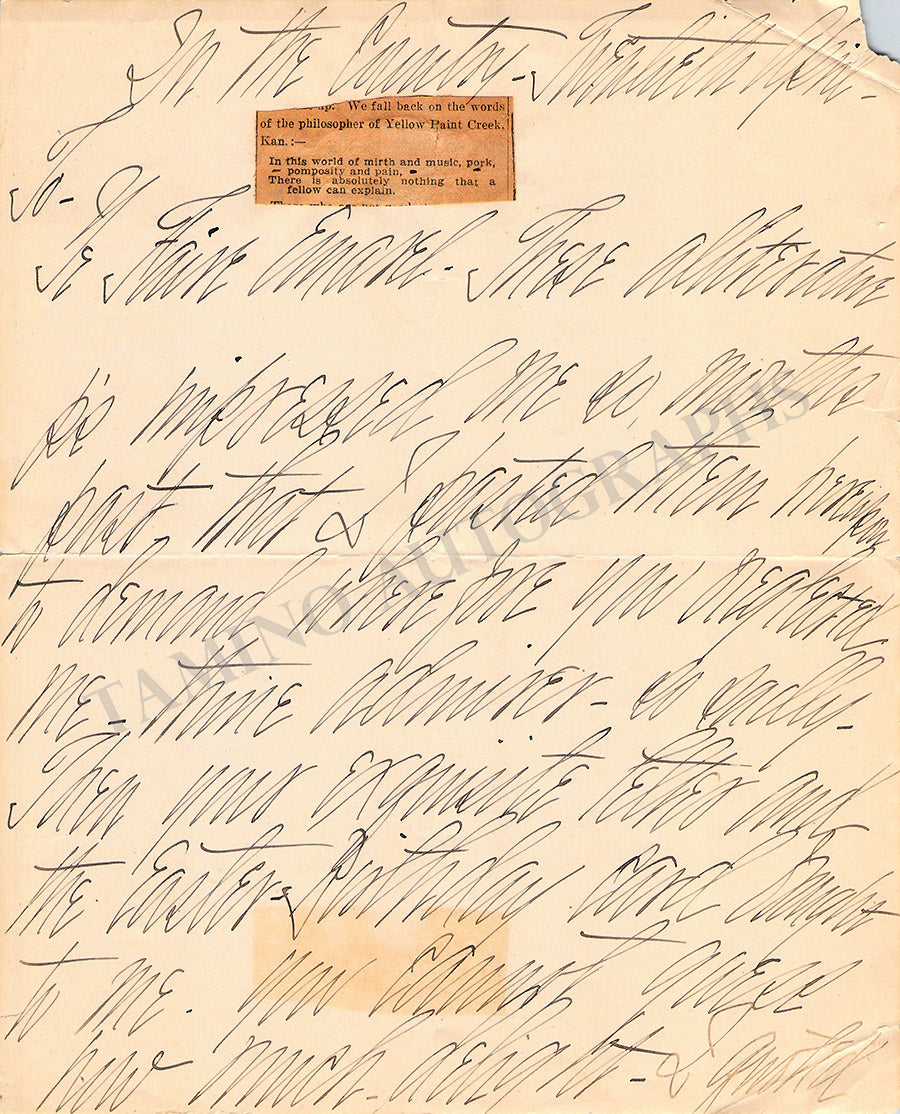 In the Country - Twentieth April -
up. We fall back on the words
of the philosopher of Yellow Paint Creek,
Kan.:—
In this world of mirth and music, pork,
pomposity and pain,
There is absolutely nothing that a
fellow can explain.
To -
Ye Faire - These alliterative
p's impressed me so, months
past, that I pasted them hereupon
to demand wherefore you neglected
me - thine admirer - so sadly -
Then your exquisite letter and
the Easter - Birthday card brought
to me. you cannot guess
how much delight - I quoted
TAMINO AUTOGRAPHS